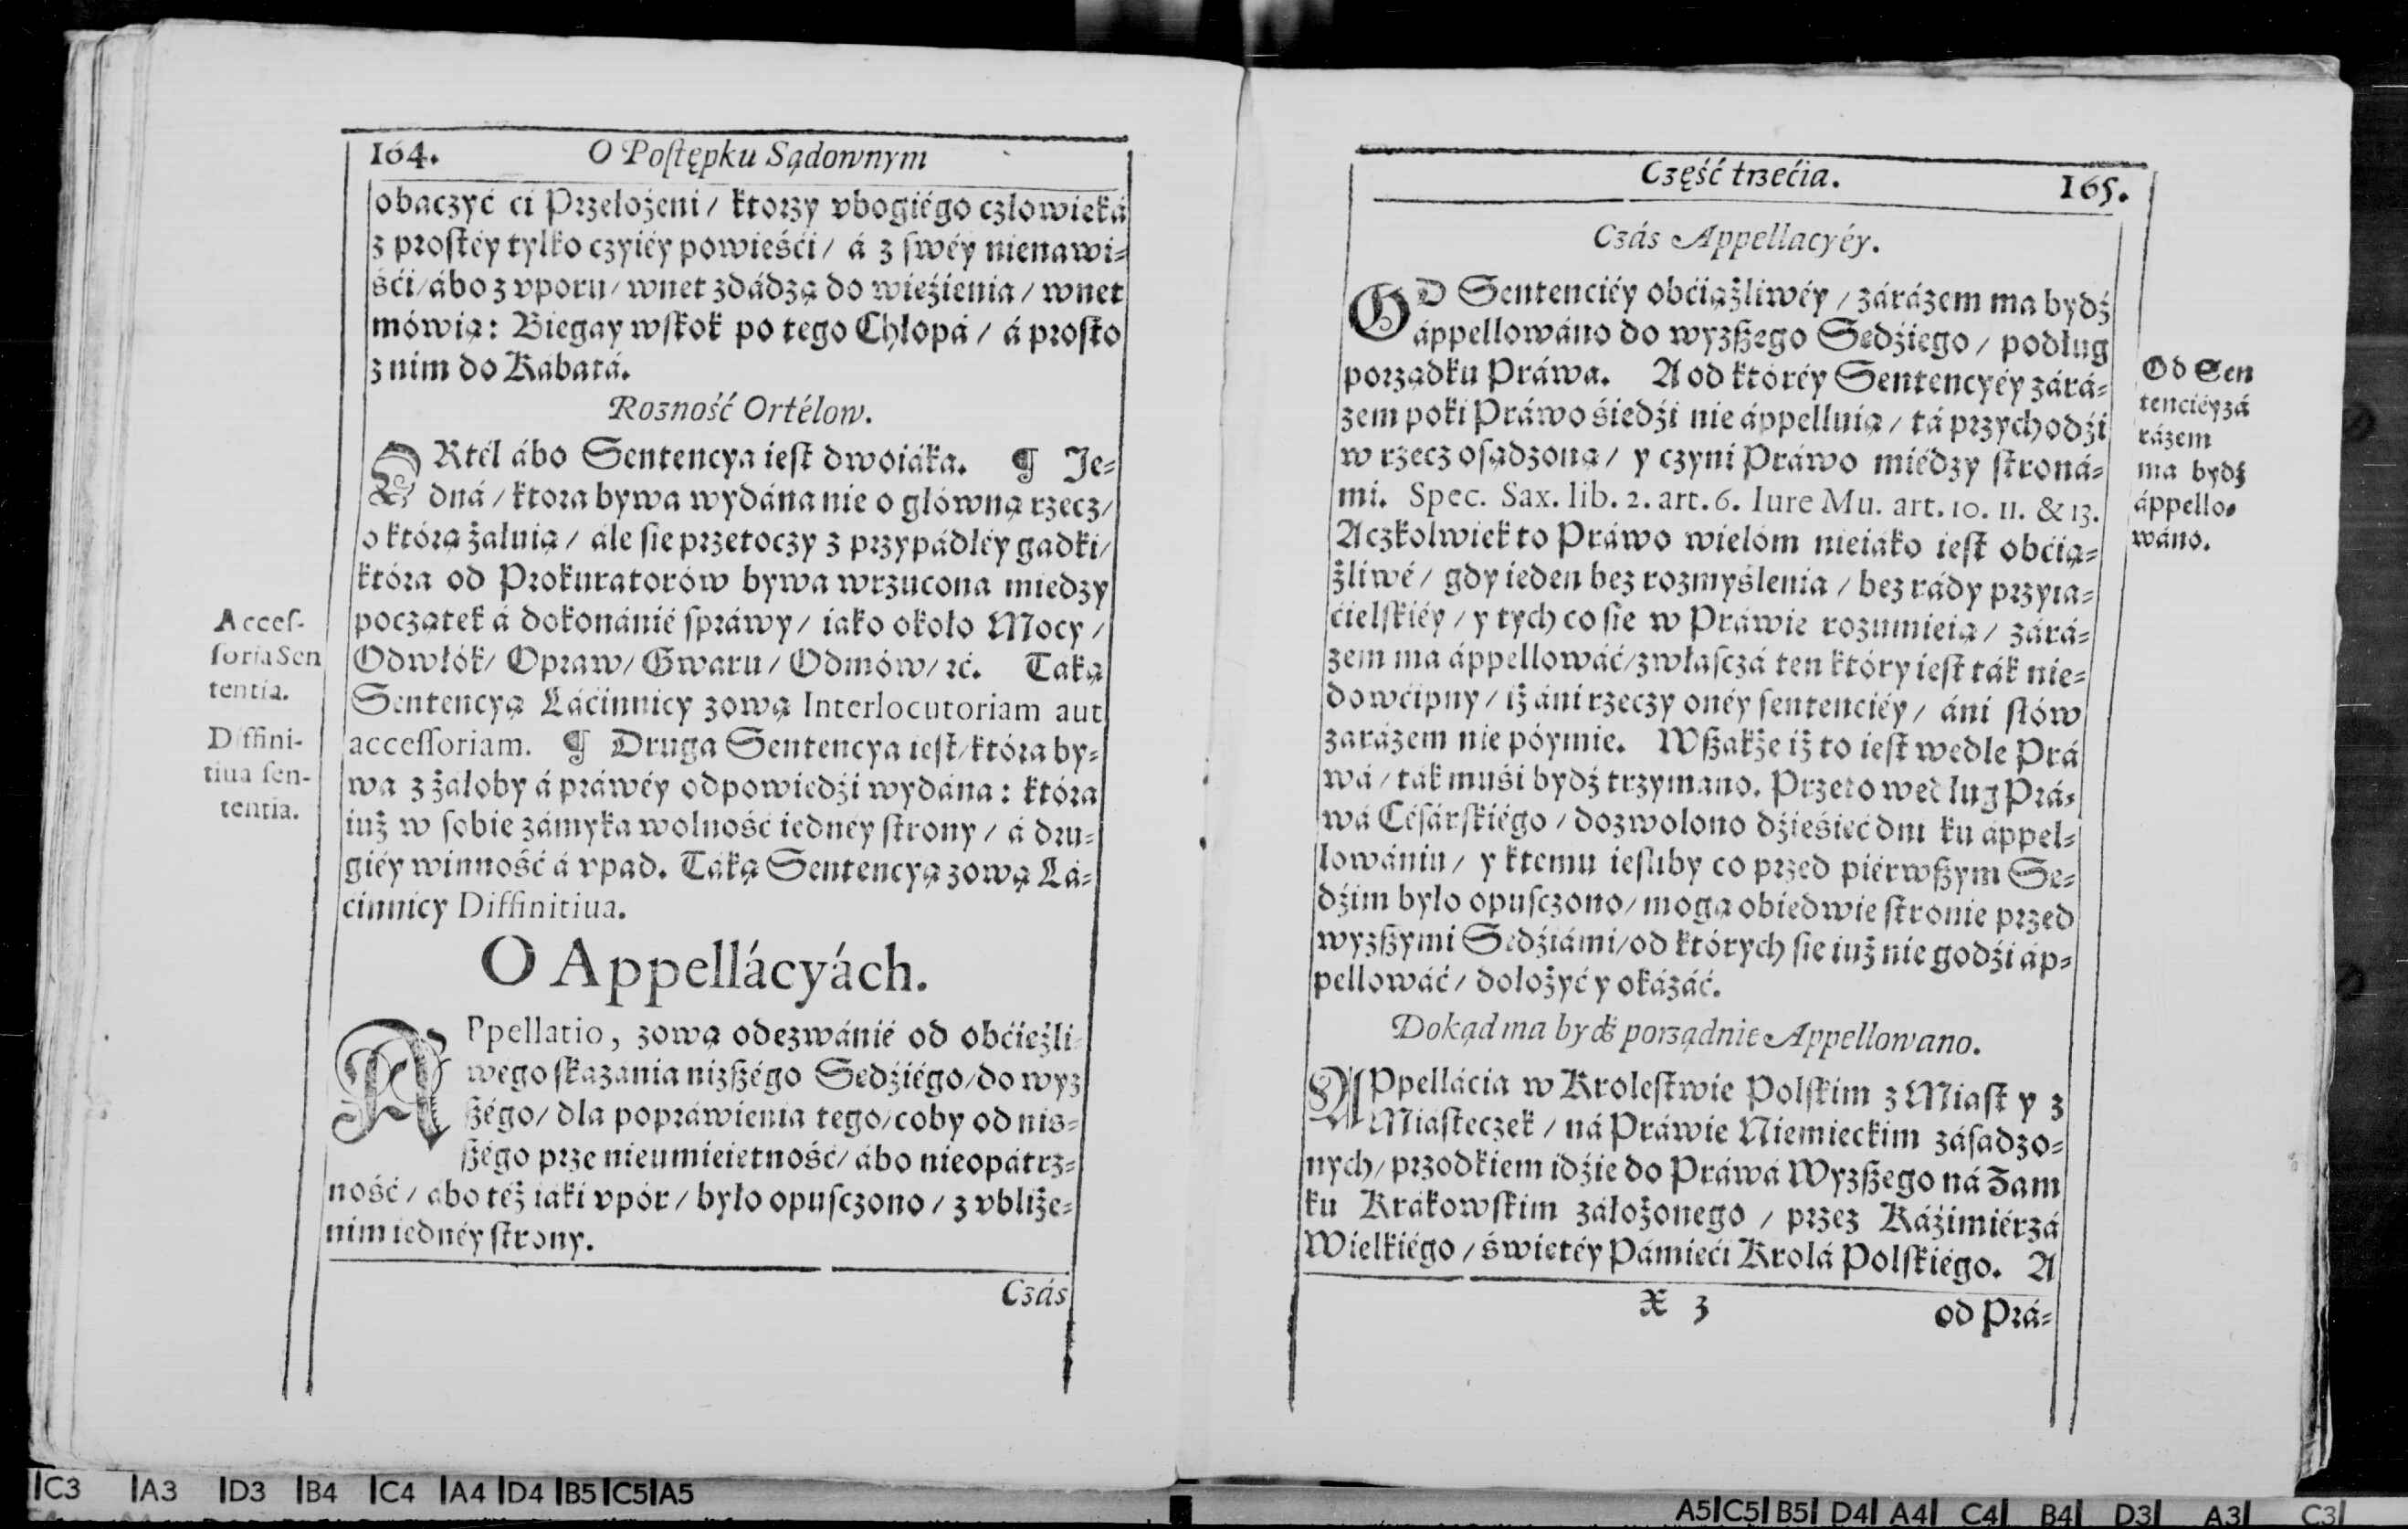 164.
O Poſtępku Sądownym
obaczyć ci Przełożeni / ktorzy vbogiégo człowieká
z proſtéy tylko czyiéy powieśći / á z ſwéy nienawi-
śći / ábo z vporu / wnet zdádzą do wieźienia / wnet
mówią: Biegay wſkok po tego Chłopá / á proſto
z nim do Kabatá.
Rozność Ortélow.
ORtél ábo Sentencya ieſt dwoiáka. ¶ Je-
dná / ktora bywa wydána nie o główną rzecz /
o którą żałuią / ále ſie przetoczy z przypádłéy gadki /
która od Prokuratorów bywa wrzucona miedzy
początek á dokonánié ſpráwy / iako około Mocy /
Odwłók / Opraw / Gwaru / Odmów / ꝛć. Taką
Sentencyą Láćinnicy zową Interlocutoriam aut
acceſſoriam. ¶ Druga Sentencya ieſt / która by-
wa z żałoby á práwéy odpowiedźi wydána: która
iuż w ſobie zámyka wolność iednéy ſtrony / á dru-
giéy winność á vpad. Táką Sentencyą zową Lá-
cinnicy Diffinitiua.
Acceſ-
ſoria Sen
tentia.
Diffini-
tiua ſen-
tentia.
O Appellácyách.
APpellatio, zową odezwánié od obćieżli-
wego ſkazania nizſzégo Sedźiégo / do wyz
ſzégo / dla popráwienia tego / coby od nis-
ſzégo prze nieumieietność / ábo nieopátrz-
ność / ábo téż iáki vpór / było opuſczono / z vbliże-
nim iednéy ſtrony.
Czás
Część trzećia.
165.
Czás Appellacyéy.
OD Sentenciéy obćiążliwéy / zárázem ma bydź
áppellowáno do wyzſzego Sedźiego / podług
porządku Práwa. A od któréy Sentencyéy zárá-
zem poki Práwo śiedźi nie áppelluią / tá przychodźi
w rzecz osądzoną / y czyni Práwo miédzy ſtroná-
mi. Spec. Sax. lib. 2. art. 6. Iure Mu. art. 10. 11. & 13.
Aczkolwiek to Práwo wielóm nieiáko ieſt obćią-
żliwé / gdy ieden bez rozmyślenia / bez rády przyia-
ćielſkiéy / y tych co ſie w Práwie rozumieią / zárá-
zem ma áppellowáć / zwłaſczá ten który ieſt ták nie-
dowćipny / iż áni rzeczy onéy ſentenciéy / áni ſłów
zarázem nie póymie. Wſzakże iż to ieſt wedle Prá
wá / ták muśi bydź trzymano. Przeto według Prá-
wá Céſárſkiégo / dozwolono dźieśieć dni ku áppel-
lowániu / y ktemu ieſliby co przed piérwſzym Se-
dźim było opuſczono / mogą obiedwie ſtronie przed
wyzſzymi Sedźiámi / od których ſie iuż nie godźi áp-
pellowáć / dołożyć y okázáć.
Od Sen
tenciéy zá
rázem
ma bydź
áppello-
wáno.
Dokąd ma bydź porządnie Appellowano.
APpellácia w Kroleſtwie Polſkim z Miaſt y z
Miáſteczek / ná Práwie Niemieckim záſadzo-
nych / przodkiem idźie do Práwá Wyzſzego ná Zam
ku Krákowſkim záłożonego / przez Káźimiérzá
Wielkiégo / świetéy Pámieći Krolá Polſkiégo. A
X 3
od Prá-
|C3 |A3 |D3 |B4 |C4 |A4 |D4 |B5 |C5|A5
A5|C5| B5| D4| A4| C4| B4| D3| A3| C3|